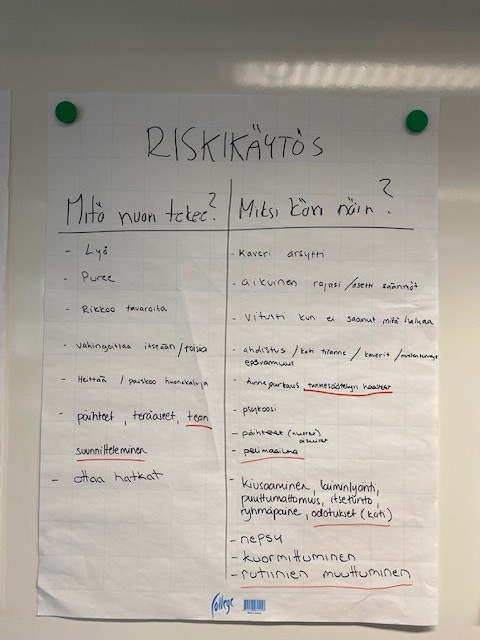 RISKIKÄYTÖS
Mitä nuori tekee?
- Lyö
- Puree
- Rikkoo tavaroita
- vahingoittaa itseään/toisia
- Heittää / paiskoo huonekaluja
- päihteet, teräaseet, teon
suunnitteleminen
- ottaa hatkat
Miksi kävi näin?
- Kaveri ärsytti
- aikuinen rajasi /asetti säännöt
- Vitutti kun ei saanut mitä halusi
- ahdistus / koti tilanne / kaverit /
epävarmuus
- tunnepurkaus, tunnesäätelyn haasteet
- psykoosi
- päihteet (nuoret)
aikuiset
- pelimaailma
- kiusaaminen, laiminlyönti,
puuttumattomuus, itsetunto,
ryhmäpaine, odotukset (koti)
- nepsy
- kuormittuminen
- rutiinien muuttuminen
College